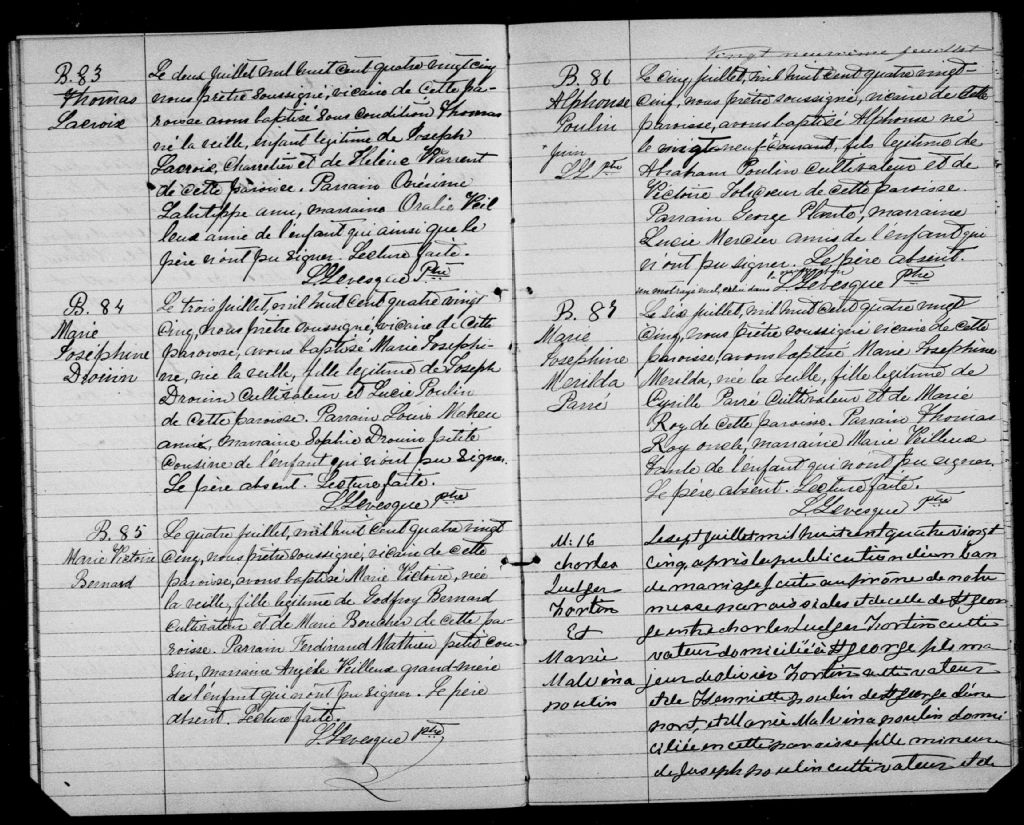 B. 83
Thomas
Lacroix
Le deux juillet mil huit cent quatre vingt cinq
nous prêtre soussigné, vicaire de cette pa-
roisse avons baptisé sous condition Thomas
né la veille, enfant légitime de Joseph
Lacroix, Charretier et de Hélène Warrent
de cette paroisse. Parrain Onésime
ami, marraine Oralie Veil
leux amie de l'enfant qui ainsi que le
père n'ont pu signer. Lecture faite.
L. Levesque Ptre
B. 84
Marie
Joséphine
Drouin
Le trois juillet, mil huit cent quatre vingt
cinq, nous prêtre soussigné, vicaire de cette
paroisse, avons baptisé Marie Joséphi-
ne, née la veille, fille légitime de Joseph
Drouin Cultivateur et Lucie Poulin
de cette paroisse. Parrain Louis Maheu
ami, marraine Sophie Drouin petite
cousine de l'enfant qui n'ont pu signer.
Le père absent. Lecture faite.
L. Levesque Ptre
B. 85
Marie Victoire
Bernard
Le quatre juillet, mil huit cent quatre vingt
cinq, nous prêtre soussigné, vicaire de cette
paroisse, avons baptisé Marie Victoire, née
la veille, fille légitime de Godfroy Bernard
Cultivateur et de Marie Boucher de cette pa-
roisse. Parrain Ferdinand Mathieu petit cou-
sin, marraine Angèle Veilleux grand-mère
de l'enfant qui n'ont pu signer. Le père
absent. Lecture faite.
L. Levesque ptre
Vingt neuvième feuillet
B. 86
Alphonse
Poulin
Juin
LL Ptre
Le cinq juillet, mil huit cent quatre vingt-
cinq, nous prêtre soussigné, vicaire de cette
paroisse, avons baptisé Alphonse né
le vingt neuf courant, fils légitime de
Abraham Poulin Cultivateur et de
Victoire Jolicoeur de cette paroisse.
Parrain George Plante, marraine
Lucie Mercier amis de l'enfant qui
n'ont pu signer. Le père absent.
un mot rayé nul, celui dans L. Levesque Ptre
B. 87
Marie
Josephine
Merilda
Parré
Le six juillet, mil huit cent quatre vingt
cinq, nous prêtre soussigné vicaire de cette
paroisse, avons baptisé Marie Josephine
Merilda, née la veille, fille légitime de
Cyrille Parré Cultivateur et de Marie
Roy de cette paroisse. Parrain Thomas
Roy oncle, marraine Marie Veilleux
tante de l'enfant qui n'ont pu signer.
Le père absent. Lecture faite.
L. Levesque Ptre
M. 16
charles
Ludger
Fortin
Et
Marie
Malvina
poulin
Le sept juillet mil huit cent quatre vingt
cinq, après la publication d'un ban
de mariage faite au prône de notre
messe paroissiales et de celle de St geor-
ge entre charles Ludger Fortin culti
vateur domicilié à St george fils ma
jeur de olivier Fortin cultivateur
et de Henriette poulin de St george d'une
part, et Marie Malvina poulin domi
ciliée en cette paroisse fille mineure
de Joseph poulin cultivateur et de